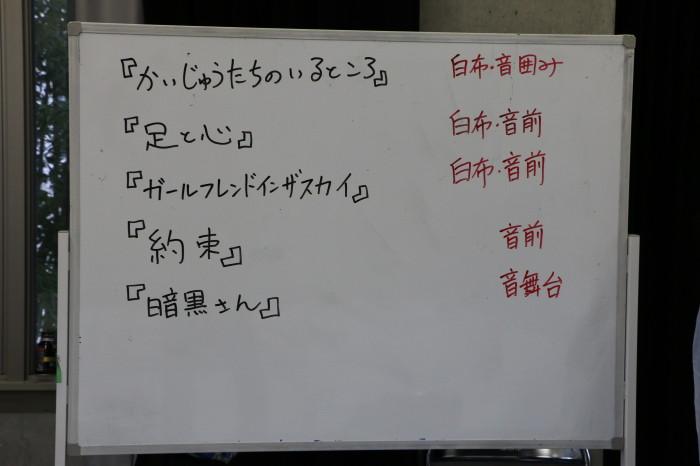 『かいじゅうたちのいるところ』 白布・音囲み
『足と心』 白布・音前
『ガールフレンドインザスカイ』 白布・音前
『約束』 音前
『暗黒さん』 音舞台